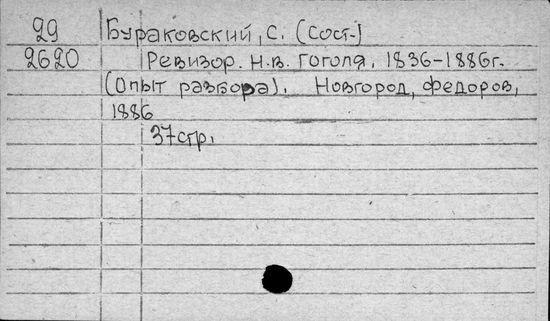 29 Бураковский, С. (Сост.)
2620 Ревизор. Н.В. Гоголя, 1836-1886г.
(Опыт разбора). Новгород, Федоров,
1886
37стр.